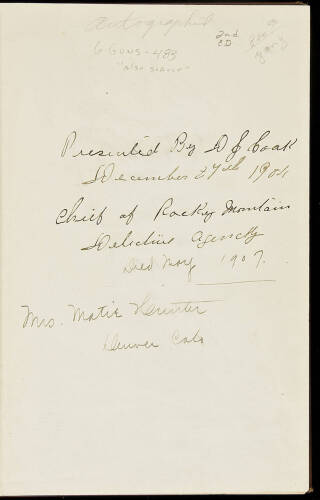 Autographed
6 GUNS - 483
"also scarce"
2nd
ED
Presented By D J Cook
December 27th 1904
Chief of Rocky Mountain
Detective Agency
Died May 1907.
Mrs. Matie Hunter
Denver Colo